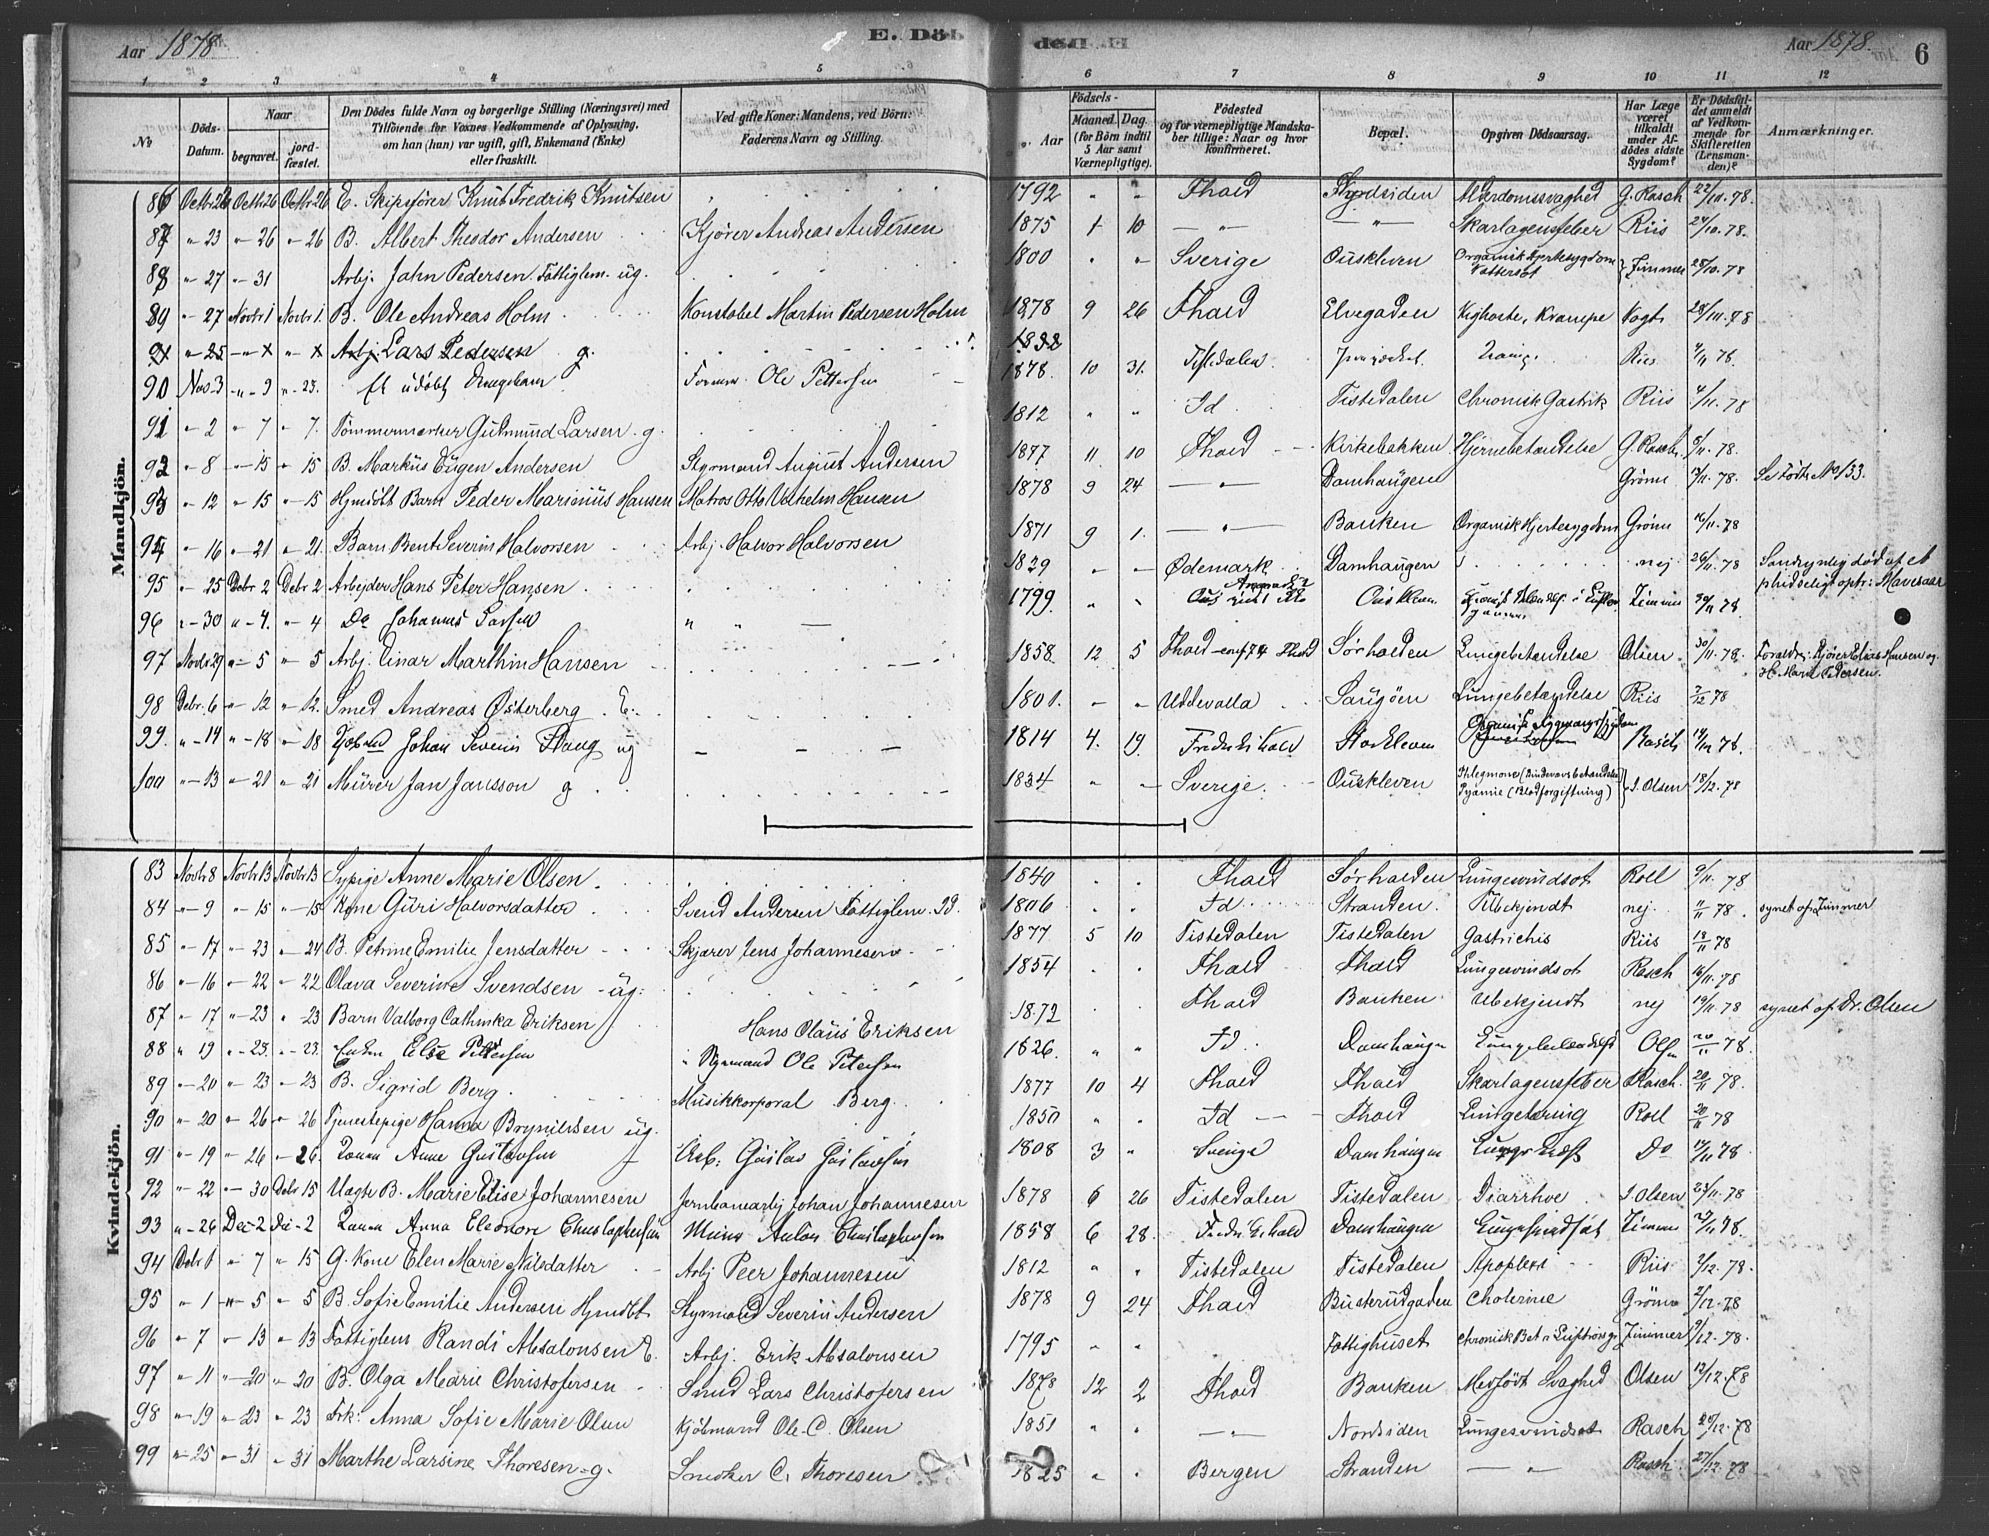 Aar 1878. E. Döb
Aar 1878. 6
1 2 3 4 5 6 7 8 9 10 11 12
No
Döds-Datum.
Naar
begravet. jordfæstet.
Den Dödes fulde Navn og borgerlige Stilling (Næringsvei) med
Tilföiende for Voxnes Vedkommende af Oplysning,
om han (hun) var ugift, gift, Enkemand (Enke)
eller fraskilt.
Ved gifte Koner: Mandens, ved Börn:
Faderens Navn og Stilling.
Födsels-
Aar
Maaned. Dag.
(for Börn indtil
5 Aar samt
Værnepligtige).
Födested
og for værnepligtige Mandska-
ber tillige: Naar og hvor
konfirmeret.
Bopæl.
Opgiven Dödsaarsag.
Har Læge
været
tilkaldt
under Af-
dödes sidste
Sygdom?
Er Dödsfal-
det anmeldt
af Vedkom-
mende for
Skifteretten
(Lensman-
den)?
Anmærkninger.
Mandkjön.
86 Octbr 26 Octbr 26 E. Skipsfører Knut Fredrik Knutsen 1792 " " Fhald Alderdomssvaghed G. Rasch 22/10. 78.
87 " 23 " 26 " 26 B. Albert Theodor Andersen Kjører Andreas Andersen 1875 1 10 — " — — " — Skarlagensfeber Riis 24/10. 78.
88 " 27 " 31 Arbj. John Pedersen Fattiglem. ug. 1800 " " Sverige Ouskleven Organisk Hjertesygdom Vattersot Zimmer 28/10. 78
89 " 27 Novbr 1 Novbr 1. B. Ole Andreas Holm Konstabel Martin Pedersen Holm 1878 9 26 Fhald Elvegaden Kighoste, Krampe Vogt 78
" 25 " x " x Arbj. Lars Pedersen g. 1832
90 Nov. 3 " 9 " 23. Et udøbt Drengebarn Ole Pettersen 1878. 10 31. Tistedalen Riis 4/11 78.
91 " 2 " 7 " 7. Tømmermærker Gudmund Larsen g. 1812 " " Id Tistedalen Chronisk Gastrik Riis 4/11. 78
92 " 8 " 15 " 15 B. Markus Eugen Andersen Styrmand August Andersen 1877 11 10 Fhald Kirkebakken Hjernebetændelse G. Rasch 78.
93 " 12 " 15 " 15 Hjemdøbt Barn Peder Marinius Hansen Matros Otto Vilhelm Hansen 1878 9 24 — " — Damhaugen Grønn 78. Se Fødte No 133.
94 " 16 " 21 " 21. Barn Bent Severin Halvorsen Arbj. Halvor Halvorsen 1871 9 1. — " — Banken Organisk Hjertesygdom Grønn 16/11. 78
95 " 25 Debr 2 Debr 2 Arbejder Hans Peter Hansen 1829 " " Ødemark Damhaugen nej 26/11. 78 Sandsynlig død af et
pludseligt optr: Mavesaar
96 " 30 " 4. " 4 Do Johannes " " — 1799 " " Ouskleven. Zimmer 30/11 78
97 Novbr 29 " 5 " 5 Arbj. Einar Marthin Hansen 1858 12 5 Fhald conf. 74 Fhald Sørhalden Lungebetændelse Olsen 30/11. 78. Forældre: Kjører Elias Hansen og
H. Marie Pedersen.
98 Debr. 6 " 12 " 12. Smed Andreas Østerberg E. 1801. " " Uddevalla Saugøen Lungebetændelse Riis 7/12 78
99. " 14 " 18 " 18 Kjøbmd Johan Severin Stang ug — — — 1814 4. 19. Frederikshald Storkleven Organisk Rasch 14/12 78.
100 " 13 " 21 " 21 Murer Jan Jansson g. 1834 " " Sverige. Ouskleven Phlegmone (Bindevævsbetændelse)
Pyæmie (Blodforgiftning) J. Olsen 18/12. 78
Kvindekjön.
83 Novbr 8 Novbr 13 Novbr 13 Sypige Anne Marie Olsen. 1840 Fhald Sørhalden Lungesvindsot Roll 9/11. 78
84 " 9 " 15 " 15 Kone Guri Halvorsdatter Svend Andersen Fattiglem. Id. 1806 Id Stranden. Ubekjendt nej. 11/11 78. synet af Zimmer
85 " 17 " 23 " 24 B. Petrine Emilie Jensdatter Skjærer Jens Johannesen. 1877 5 10 Tistedalen Tistedalen Gastrichis Riis 18/11 78
86 " 16 " 22 " 22 Olava Severine Svendsen ug. 1854 Fhald Fhald Lungesvindsot Rasch 16/11. 78
87 " 17 " 23 " 23 Barn Valborg Cathinka Eriksen Hans Olaus Eriksen 1872 Fhald Banken Ubekjendt nej 19/11. 78 synet af Dr. Olsen
88 " 19 " 23. " 23. Enken Else Pettersen Styrmand Ole Petersen 1826. " " Id Damhaugen Lungebetændelse Olsen 20/11 78.
89 " 20 " 23 " 23 B. Sigrid Berg Musikkorporal Berg. 1877 10 4 Fhald Fhald Skarlagensfeber Rasch. 20/11 78.
90 " 20 " 26 " 26 Tjenestepige Hanna Brynildsen ug. 1850 " " Id Fhald Lungetæring Roll 20/11 78
91 " 19 " 26 " 26. Konen Anne Gustavsen Arb: Gustav Gustavsen 1808 3 " Sverige Damhaugen Do 78
92 " 22 " 30 Debr 15 Uægte B. Marie Elise Johannesen Jernbanearbj Johan Johannesen 1878 6 26 Tistedalen Tistedalen Diarrhoe J. Olsen 23/11. 78
93 " 26 Dec. 2 Dec. 2 Konen Anna Eleonore Christophersen Murer Anton Christophersen 1858 6 28. Fredrikshald Damhaugen Lungesvindsot Zimmer 78.
94 Debr 1 " 7 " 15 G. Kone Elen Marie Nilsdatter Arbj Peer Johannesen 1812 " " Tistedalen Tistedalen Apoplexi Riis 2/12. 78.
95 " 1 " 5 " 5 B. Sofie Emilie Andersen Hjmdøbt Styrmand Severin Andersen 1878 9 24 Fhald Busterudgaden Cholerine Grønn 2/12. 78
96 " 7 " 13 " 13 Fattiglem Randi Absalonsen E. Arbj. Erik Absalonsen 1795 " " Fattighuset Chronisk Bet. i Luftrørsgr. Zimmer 9/12. 78.
97 " 11 " 20 " 20 B. Olga Marie Christofersen Smed Lars Christofersen 1878 12 2 Fhald Banken Medfødt Svaghed Olsen 12/12. 78
98 " 19 " 23 " 23 Frk: Anna Sofie Marie Olsen Kjøbmand Ole C. Olsen 1851 " " — " — Nordsiden Lungesvindsot Rasch 20/12. 78
99 " 25 " 31 " 31 Marthe Larsine Thoresen g. Snedker C. Thoresen 1825 " " Bergen Stranden — " — Rasch 27/12. 78